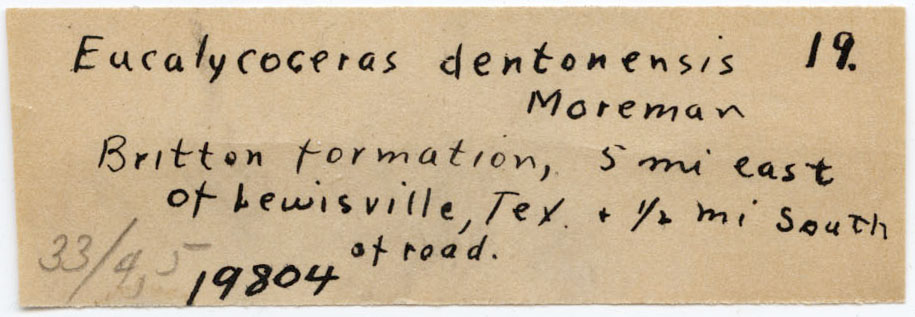 Eucalycoceras dentonensis 19.
Moreman
Britton formation, 5 mi east
of Lewisville, Tex. + 1/2 mi South
of road.
33/9,5
19804